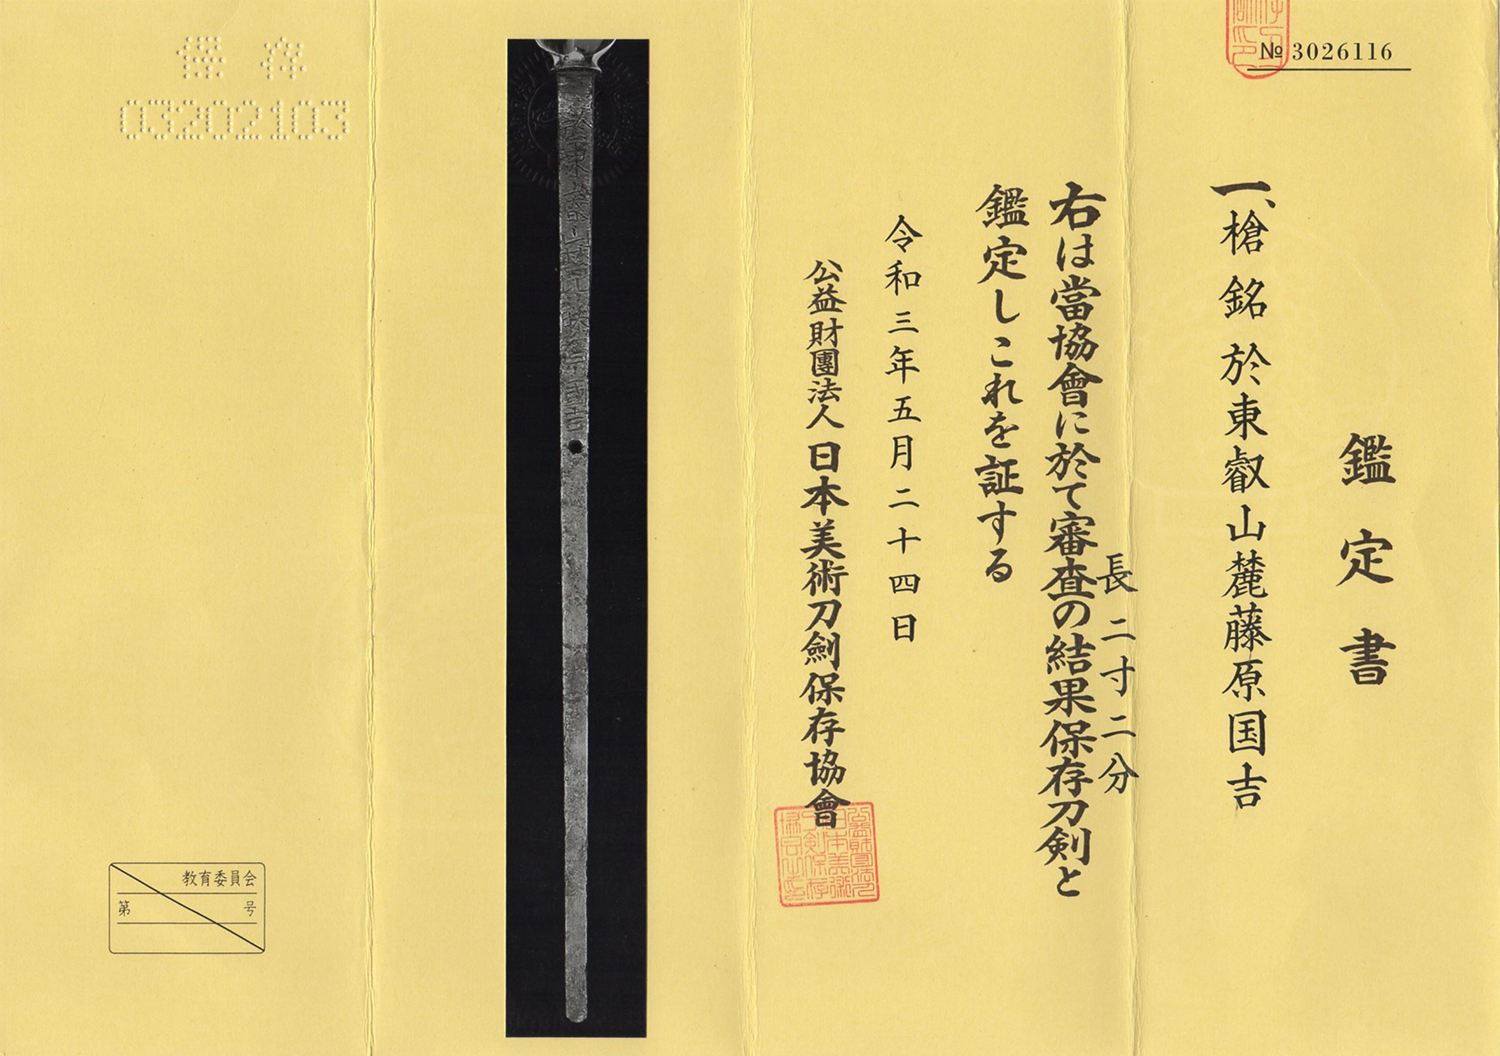 № 3026116
鑑定書
一、槍 銘 於東叡山麓藤原国吉
長 二寸二分
右は當協會に於て審査の結果保存刀剣と
鑑定しこれを証する
令和三年五月二十四日
公益財團法人 日本美術刀劍保存協會
於東叡山麓藤原国吉
保存
03202103
教育委員会
第 号